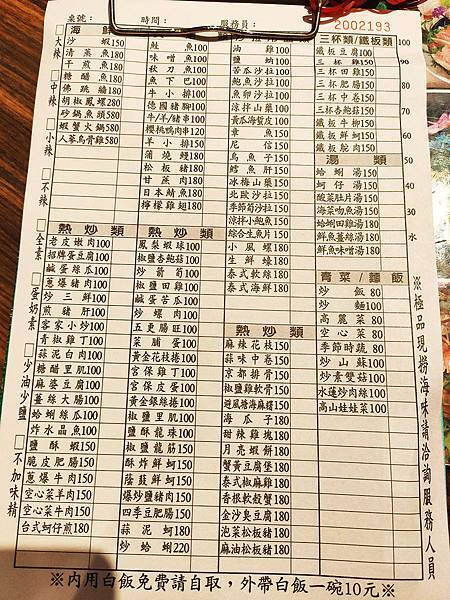 桌號： 時間： 服務員： 2002193
□大辣 □中辣 □小辣 □不辣 □全素 □蛋奶素 □少油少鹽 □不加味精
海鮮
沙蝦150
清蒸魚
干煎魚
糖醋魚
佛跳牆180
胡椒鳳螺280
砂鍋魚頭580
蝦蟹火鍋580
人蔘烏骨雞580
熱炒類
老皮嫩肉100
招牌蛋豆腐100
鹹蛋絲瓜100
蔥爆豬肉100
炒三鮮100
煎豬肝100
客家小炒100
青椒雞丁100
蒜泥白肉100
糖醋里肌100
麻婆豆腐100
薑絲大腸100
蛤蜊絲瓜100
炸水晶魚100
鹽酥蝦150
脆皮肥腸150
蔥爆牛肉150
空心菜羊肉150
空心菜牛肉150
台式蚵仔煎180
鮭魚100
味噌魚100
秋刀魚100
魚下巴100
牛小排100
德國豬腳100
牛/羊/豬串100
櫻桃鴨肉串120
羊小排150
蒲燒鰻180
松阪豬180
甘蔗肉180
日本鯖魚180
檸檬雞翅180
鳳梨蝦球100
椒鹽杏鮑菇100
炒箭筍100
椒鹽田雞100
鹹蛋苦瓜100
炒螺肉100
五更腸旺100
菜脯蛋100
黃金花枝捲100
宮保雞丁100
宮保皮蛋100
黃金銀絲捲100
椒鹽里肌100
鹽酥龍珠100
椒鹽龍筋150
酥炸鮮蚵150
蔭豉鮮蚵150
爆炒鹽豬肉150
四季豆肥腸150
蒜泥蚵180
炒蛤蜊220
油雞100
鹽蚋100
苦瓜沙拉100
鮑魚沙拉100
涼筍沙拉100
魚卵沙拉100
涼拌山藥100
黃瓜海蜇皮100
章魚150
尾信150
烏魚子150
鱈魚肝150
冰梅山藥150
北歐沙拉150
季節筍沙拉150
涼拌小鮑魚150
綜合生魚片150
小風螺180
生鮮蠔180
泰式軟絲180
泰式海鮮180
熱炒類
麻辣花枝150
蒜味中卷150
京都排骨150
椒鹽雞軟骨150
避風塘海麻糬150
海瓜子180
甜辣雞塊180
月亮蝦餅180
蟹黃豆腐煲180
泰式椒麻雞180
香根軟殼蟹180
金沙臭豆腐180
泡菜松板豬180
麻油松板豬180
三杯類/鐵板類
鐵板豆腐100
三杯雞150
三杯田雞150
三杯肥腸150
三杯中卷150
三杯杏鮑菇150
鐵板牛柳150
鐵板鮮蚵150
鐵板鴕肉150
湯類
蛤蜊湯150
蚵仔湯150
酸菜肚片湯150
海菜吻魚湯150
蛤蜊田雞湯180
鮮魚薑絲湯180
鮮魚味噌湯180
青菜/麵飯
炒飯80
炒麵100
高麗菜80
空心菜80
季節時蔬80
炒山蘇100
炒素雙菇100
水蓮炒肉絲100
高山娃娃菜100
100
90
80
70
60
50
40
30
水
※極品現撈海味請洽詢服務人員
※內用白飯免費請自取，外帶白飯一碗10元※